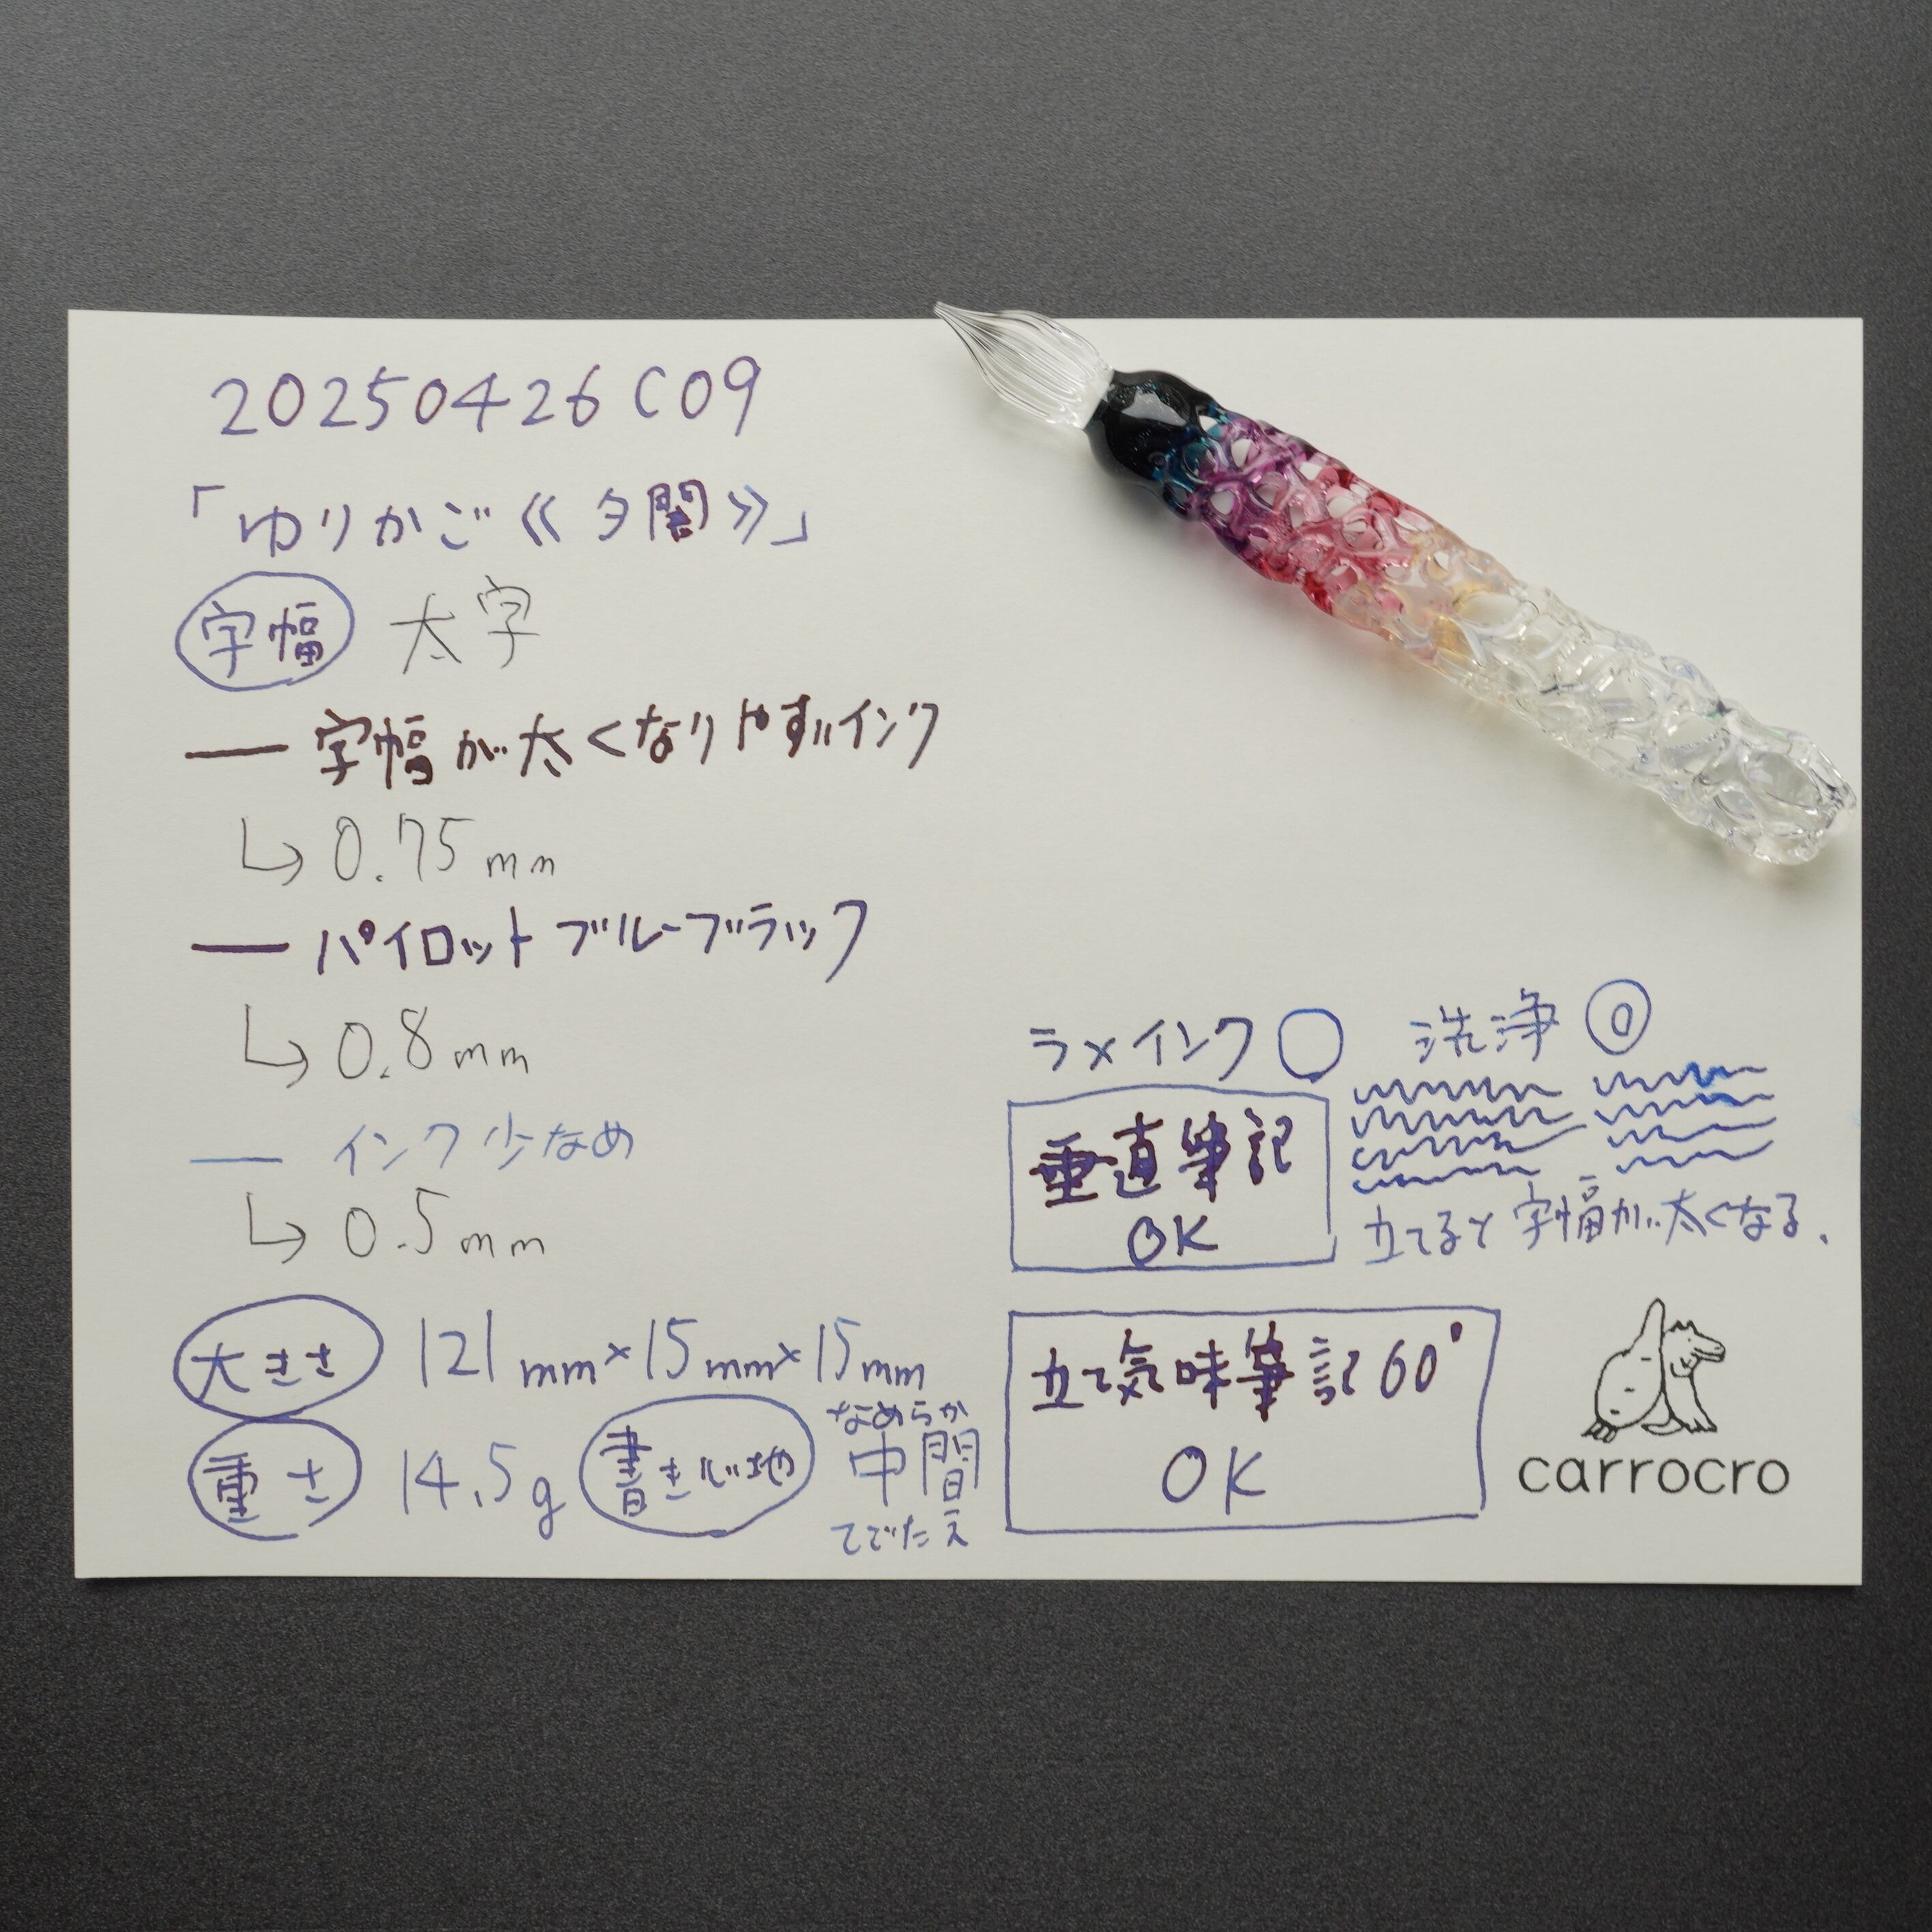 20250426 C09
「ゆりかご《夕闇》」
字幅 太字
字幅が太くなりやすいインク
0.75mm
パイロット ブルーブラック
0.8mm
インク少なめ
0.5mm
大きさ 121mm×15mm×15mm
重さ 14.5g 書き心地 なめらか
中間
てごたえ
ラメインク ○ 洗浄 ◎
垂直筆記
OK
立てると字幅が太くなる.
立て気味筆記60°
OK
carrocro